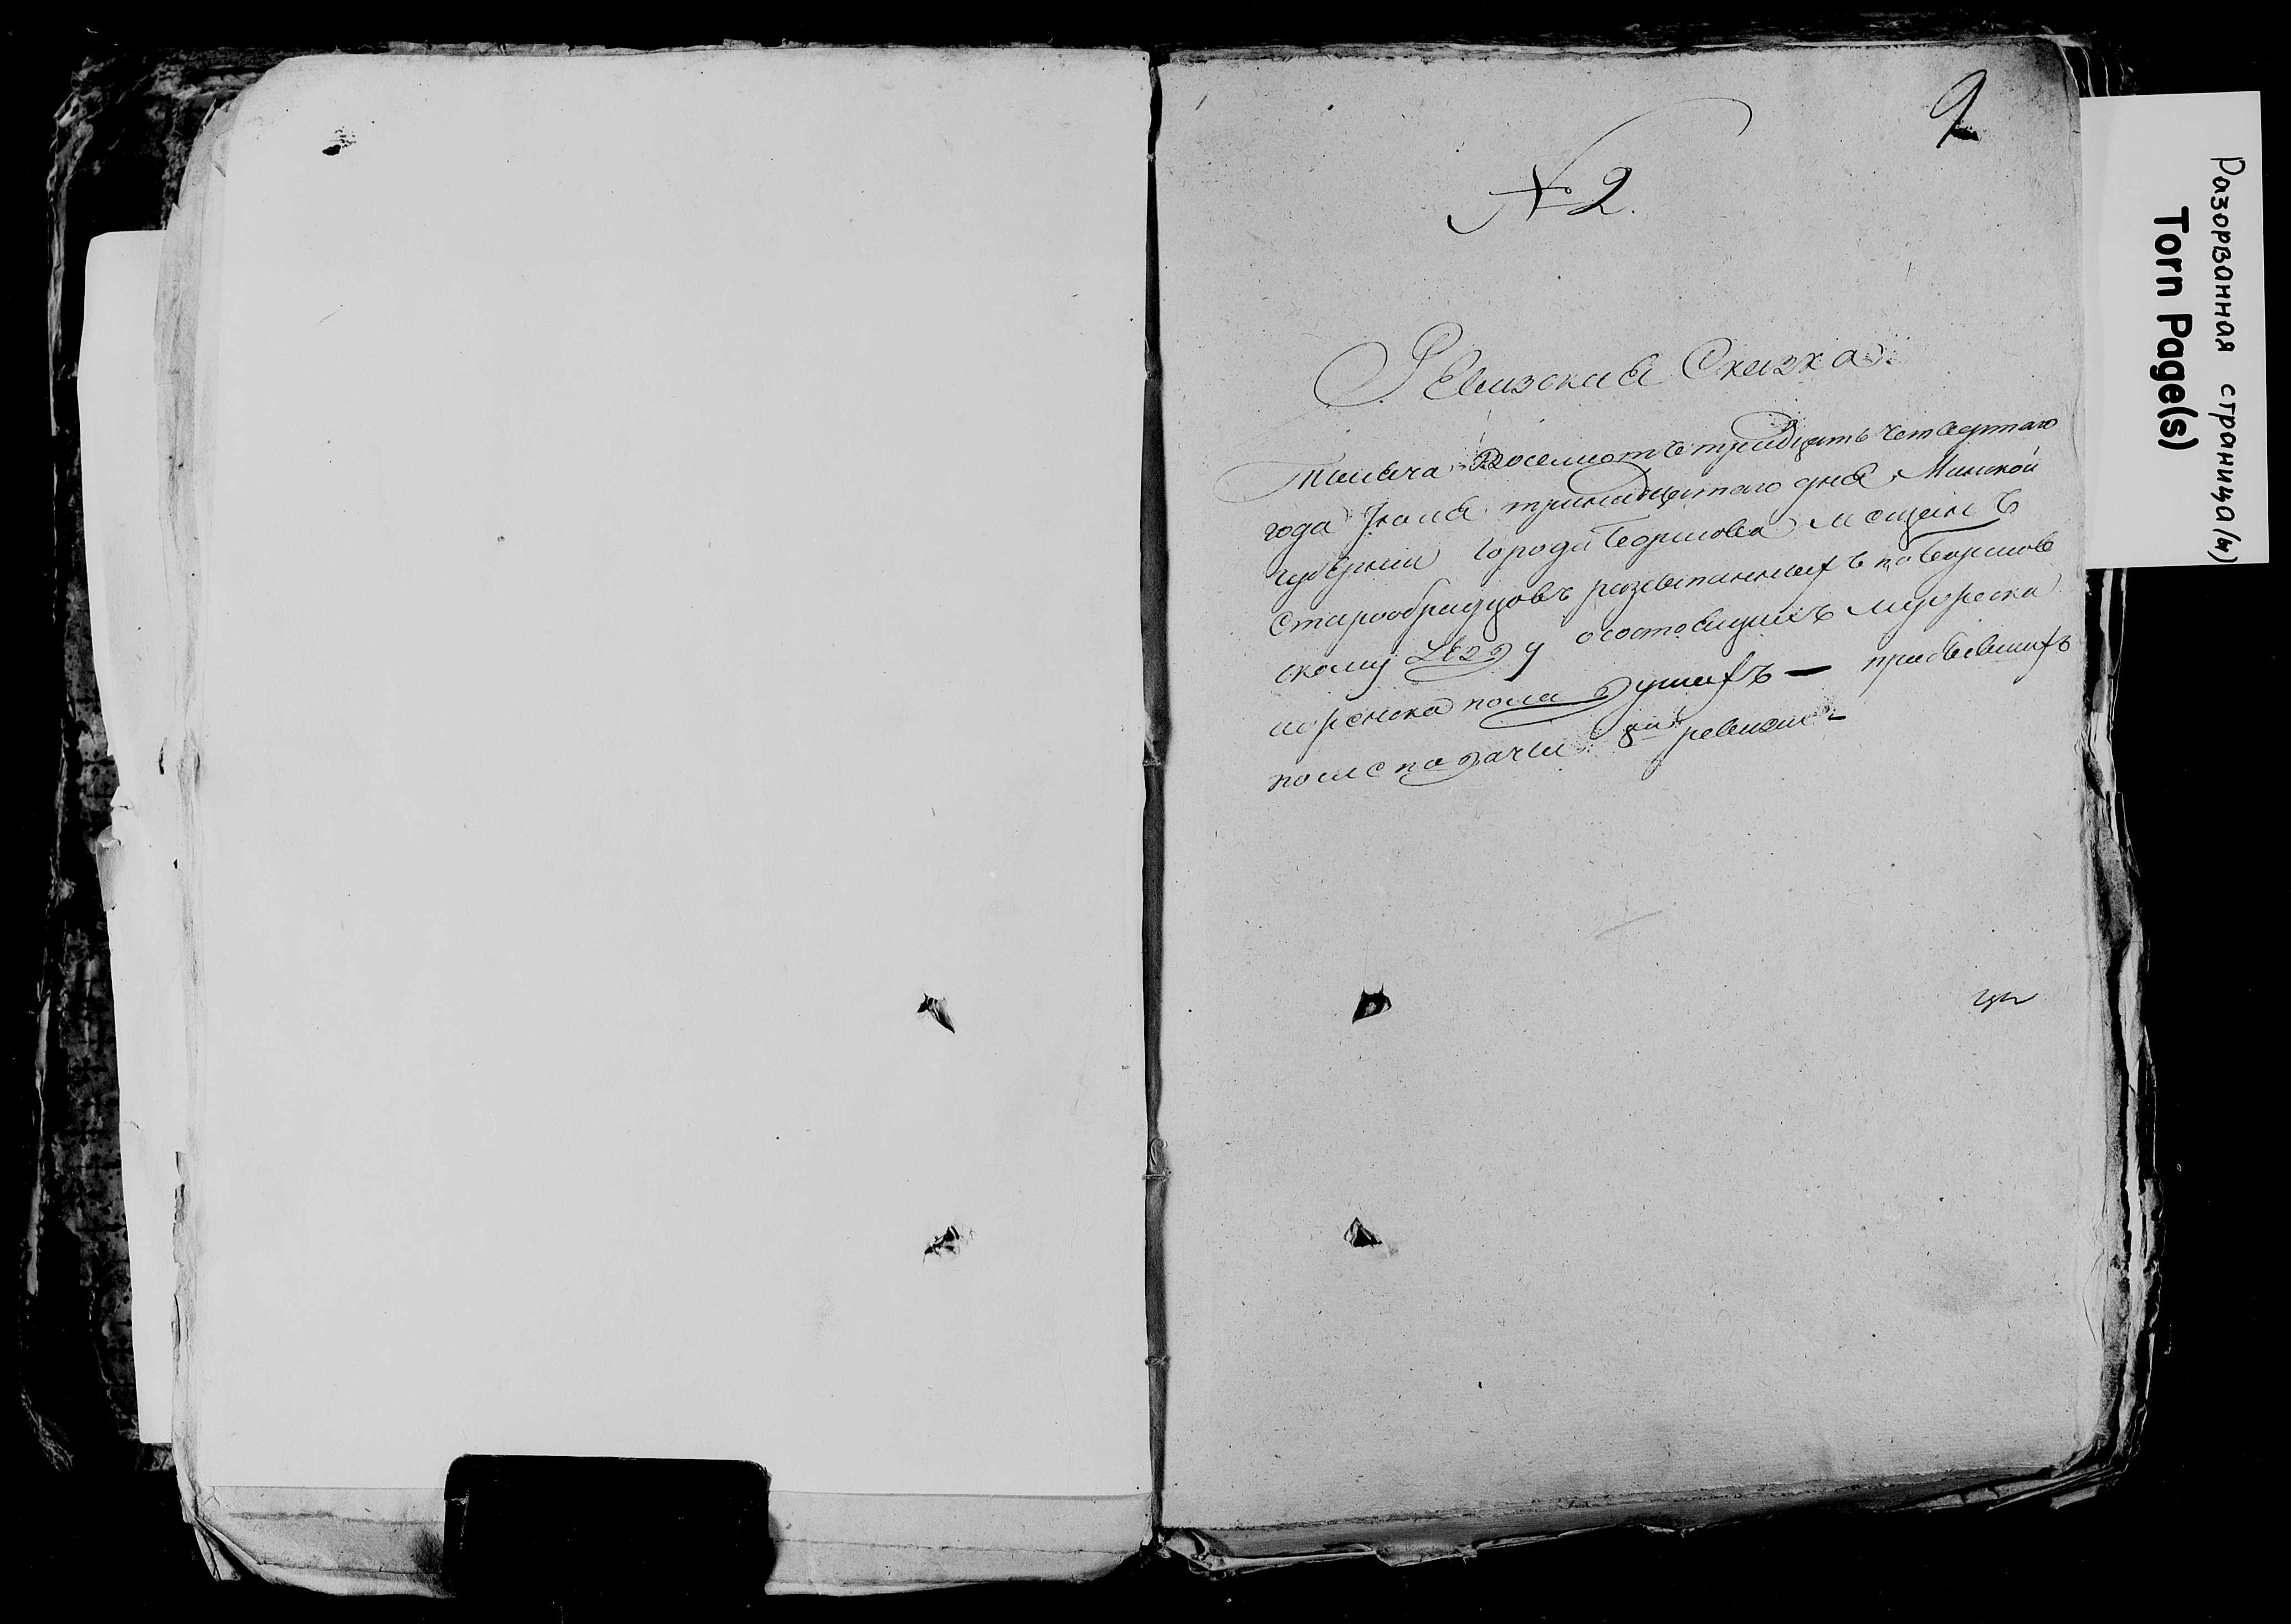 9
№ 2.
Ревизская Сказка.
Тысяча Восемотъ тридцать четвертаго
года Іюля тринадцатаго дня, Минской
губерніи города Борисова мещанъ
Старообрядцовъ разсытанныхъ по Борисов
скому уезду о состоящихъ мужеска
и женска пола душахъ — прибывшихъ
после подачи 8й ревизіи
Разорванная страница(ы)
Torn Page(s)